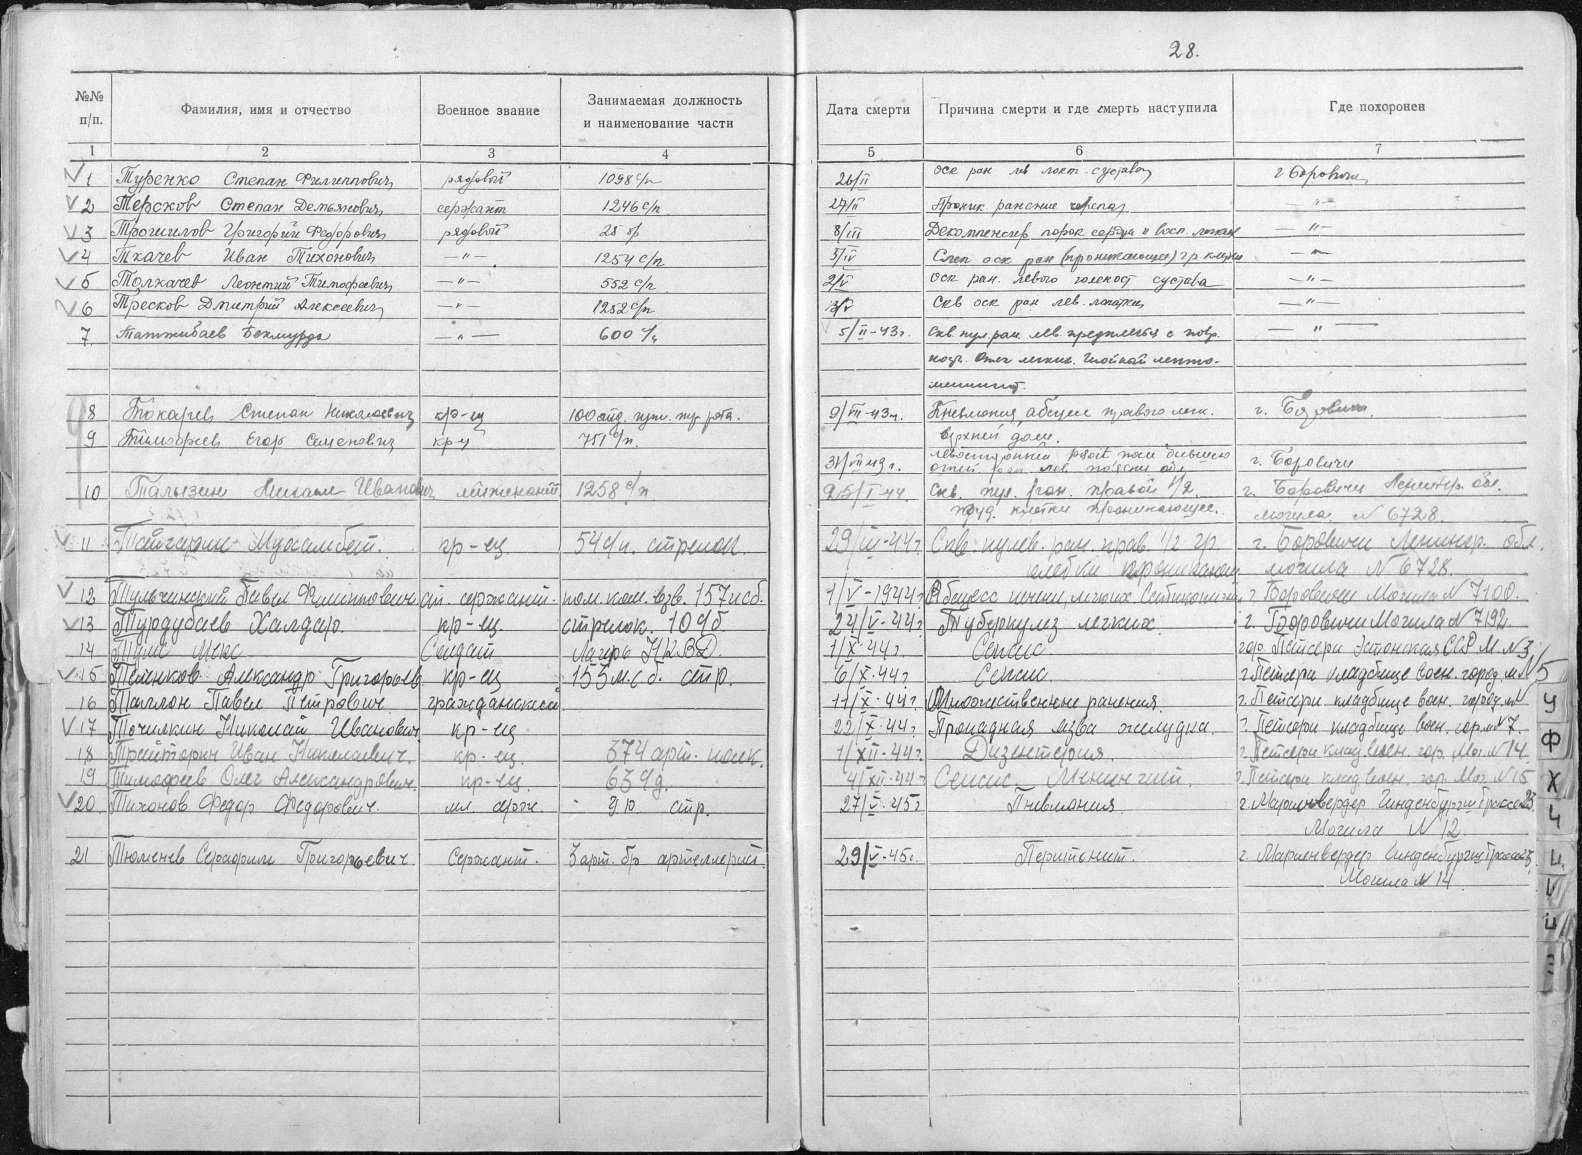 28.
№№ п/п. Фамилия, имя и отчество Военное звание Занимаемая должность и наименование части Дата смерти Причина смерти и где смерть наступила Где похоронен
1 2 3 4 5 6 7
1 Туренко Степан Филиппович рядовой 1098 с/п 26/II оск ран лев локт. сустава г Боровичи
2 Терсков Степан Демьянович сержант 1246 с/п 27/II Проник. ранение черепа — " —
3 Трошилов Григорий Федорович рядовой 28 8/III Декомпенсир порок сердца и восп. легких — " —
4 Ткачев Иван Тихонович — " — 1254 с/п 3/IV Слеп оск ран (проникающее) гр клетки — " —
5 Толкачев Леонтий Тимофеевич — " — 552 с/п 2/V оск ран. левого голеност сустава — " —
6 Тресков Дмитрий Алексеевич — " — 1252 с/п 13/V Скв оск ран лев. лопатки — " —
7 Татжибаев Бекмурда — " — 600 5/II-43г. Скв. пул. ран. лев. предплечья с повр. — " —
кост. Отек легких. Гнойный лепто-
менингит.
8 Токарев Степан Николаевич кр-ец 100 рота. 9/VII-43г. Пневмония, абсцесс правого легк. г. Боровичи
9 Тимофеев Егор Семенович кр-ц 751 с/п. верхней доли.
31/VII 43г. левосторонний г. Боровичи
10 Талызин Михаил Иванович лейтенант 1258 с/п 25/I-44 Скв. пул. ран. правой 1/2 г. Боровичи Ленингр. обл.
груд. клетки проникающее. могила № 6728.
11 Мухамбет. кр-ец. 54 с/п. стрелок 29/III-44г. Скв. пулев. ран. прав. 1/2 гр. г. Боровичи Ленингр. обл.
клетки проникающ. могила № 6728.
12 Тульчинский Павел Филиппович ст. сержант. пом. ком. взв. 157 исб. 1/V-1944г. Абсцесс печени, легких. г. Боровичи Могила № 7100.
13 Турдубаев Халдар. кр-ец стрелок. 109б 24/V-44г. Туберкулз легких. г. Боровичи Могила № 7192
14 Макс Солдат Лагерь НКВД. 1/X-44г. Сепсис гор. Петсери Эстонская ССР М. № 3
15 Теленков Александр Григорьев. кр-ец 155 м.с б. стр. 6/X-44г. Сепсис. г. Петсери кладбище воен. город. м № 5
16 Таллон Павел Петрович. гражданский 11/X-44г. Множественные ранения. г. Петсери. кладбище воен. город. м №
17 Точилкин Николай Иванович. кр-ец 22/X-44г. Прободная язва желудка. г. Петсери кладбище воен. гор. м № 7.
18 Трейтарин Иван Николаевич. кр-ец. 374 арт. полк. 1/XII-44г. Дизентерия. г. Петсери клад. воен. гор. Мог. № 14.
19 Тимофеев Олег Александрович. кр-ец. 63 9д. 4/XII-44г. Сепсис. Менингит. г. Петсери клад. воен. гор. Мог. № 15
20 Тихонов Федор Федорович. мл. серж. стр. 27/V-45г. Пневмония. г. Мариенвердер Гинденбургштрассе 25
Могила № 12
21 Тюменев Серафим Григорьевич. Сержант. 3 арт. бр артеллерист. 29/V-45г. Перитонит. г. Мариенвердер Гинденбургштрассе 25
Могила № 14.
У
Ф
Х
Ч
Ц